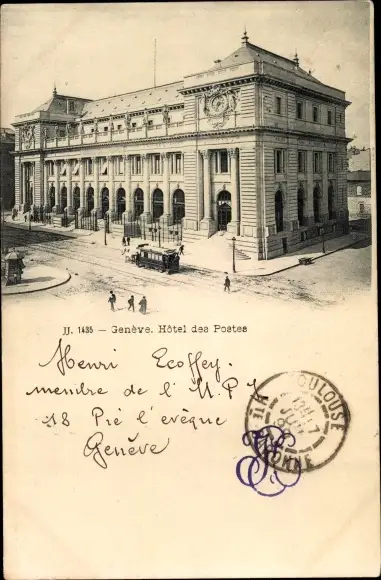 JJ. 1435 – Genève. Hôtel des Postes
Henri Ecoffey.
membre de l'U.P.
18 Pré l'evêque
Genève
TOULOUSE